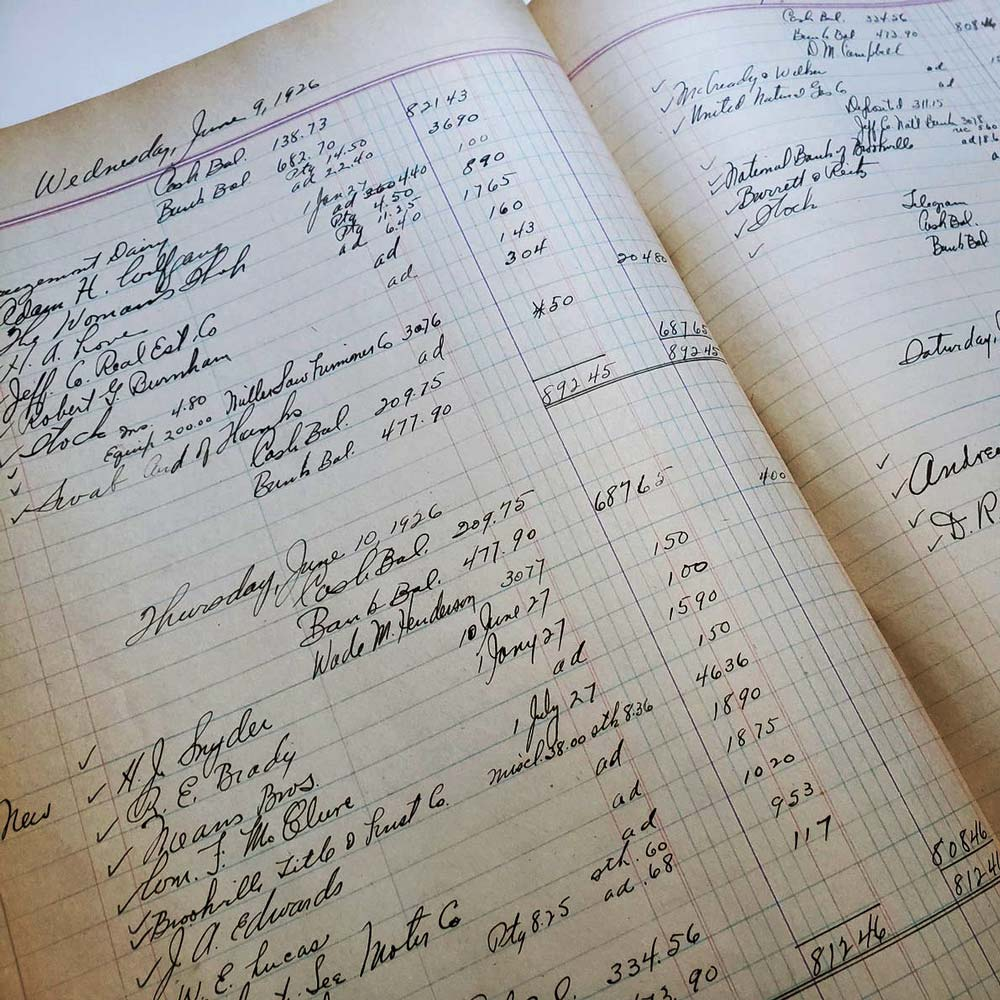 Wednesday, June 9, 1926
Cash Bal. 138.73
Bank Bal 682.70 82143
Ptg 14.50
ad 22.40 3690
Dairy
Adam H. Wolfgang 1 Jan 27 100
The Womans Shop ad 4.40
Ptg 4.50 890
H. A. Love Ptg 11.25
ad 6.40 1765
Jeff. Co. Real Est. Co ad 160
Robert G Burnham ad 143
Stock Ins. 4.80 304
Equip 200.00 Miller Saw Trimmer Co 3076 20480
ad *50
Cash Bal. 209.75
Bank Bal. 477.90 68765
89245 89245
Thursday, June 10, 1926
Cash Bal. 209.75
Bank Bal. 477.90 68765
Wade M. Henderson 3077 400
H. J. Snyder 10 June 27 150
New R. E. Brady 1 Jany 27 100
Means Bros. ad 1590
Wm. F. McClure 1 July 27 150
Brookville Title & Trust Co. Miscl. 38.00 oth 8.36 4636
J. A. Edwards ad 1890
W. E. Lucas ad 1875
ad 1020
Motor Co oth .60
Ptg 8.25 ad .68 953
117
334.56
90 80846
81246 8124
Cash Bal. 334.56
Bank Bal 473.90 808
D M Campbell
McCready & Wilker ad
United Natural Gas Co ad
Deposited 311.15
Jeff Co Natl Bank 3078
National Bank of Brookville
Barrett &
Stock Telegram
Cash Bal.
Bank Bal
Saturday,
Andre
D. R